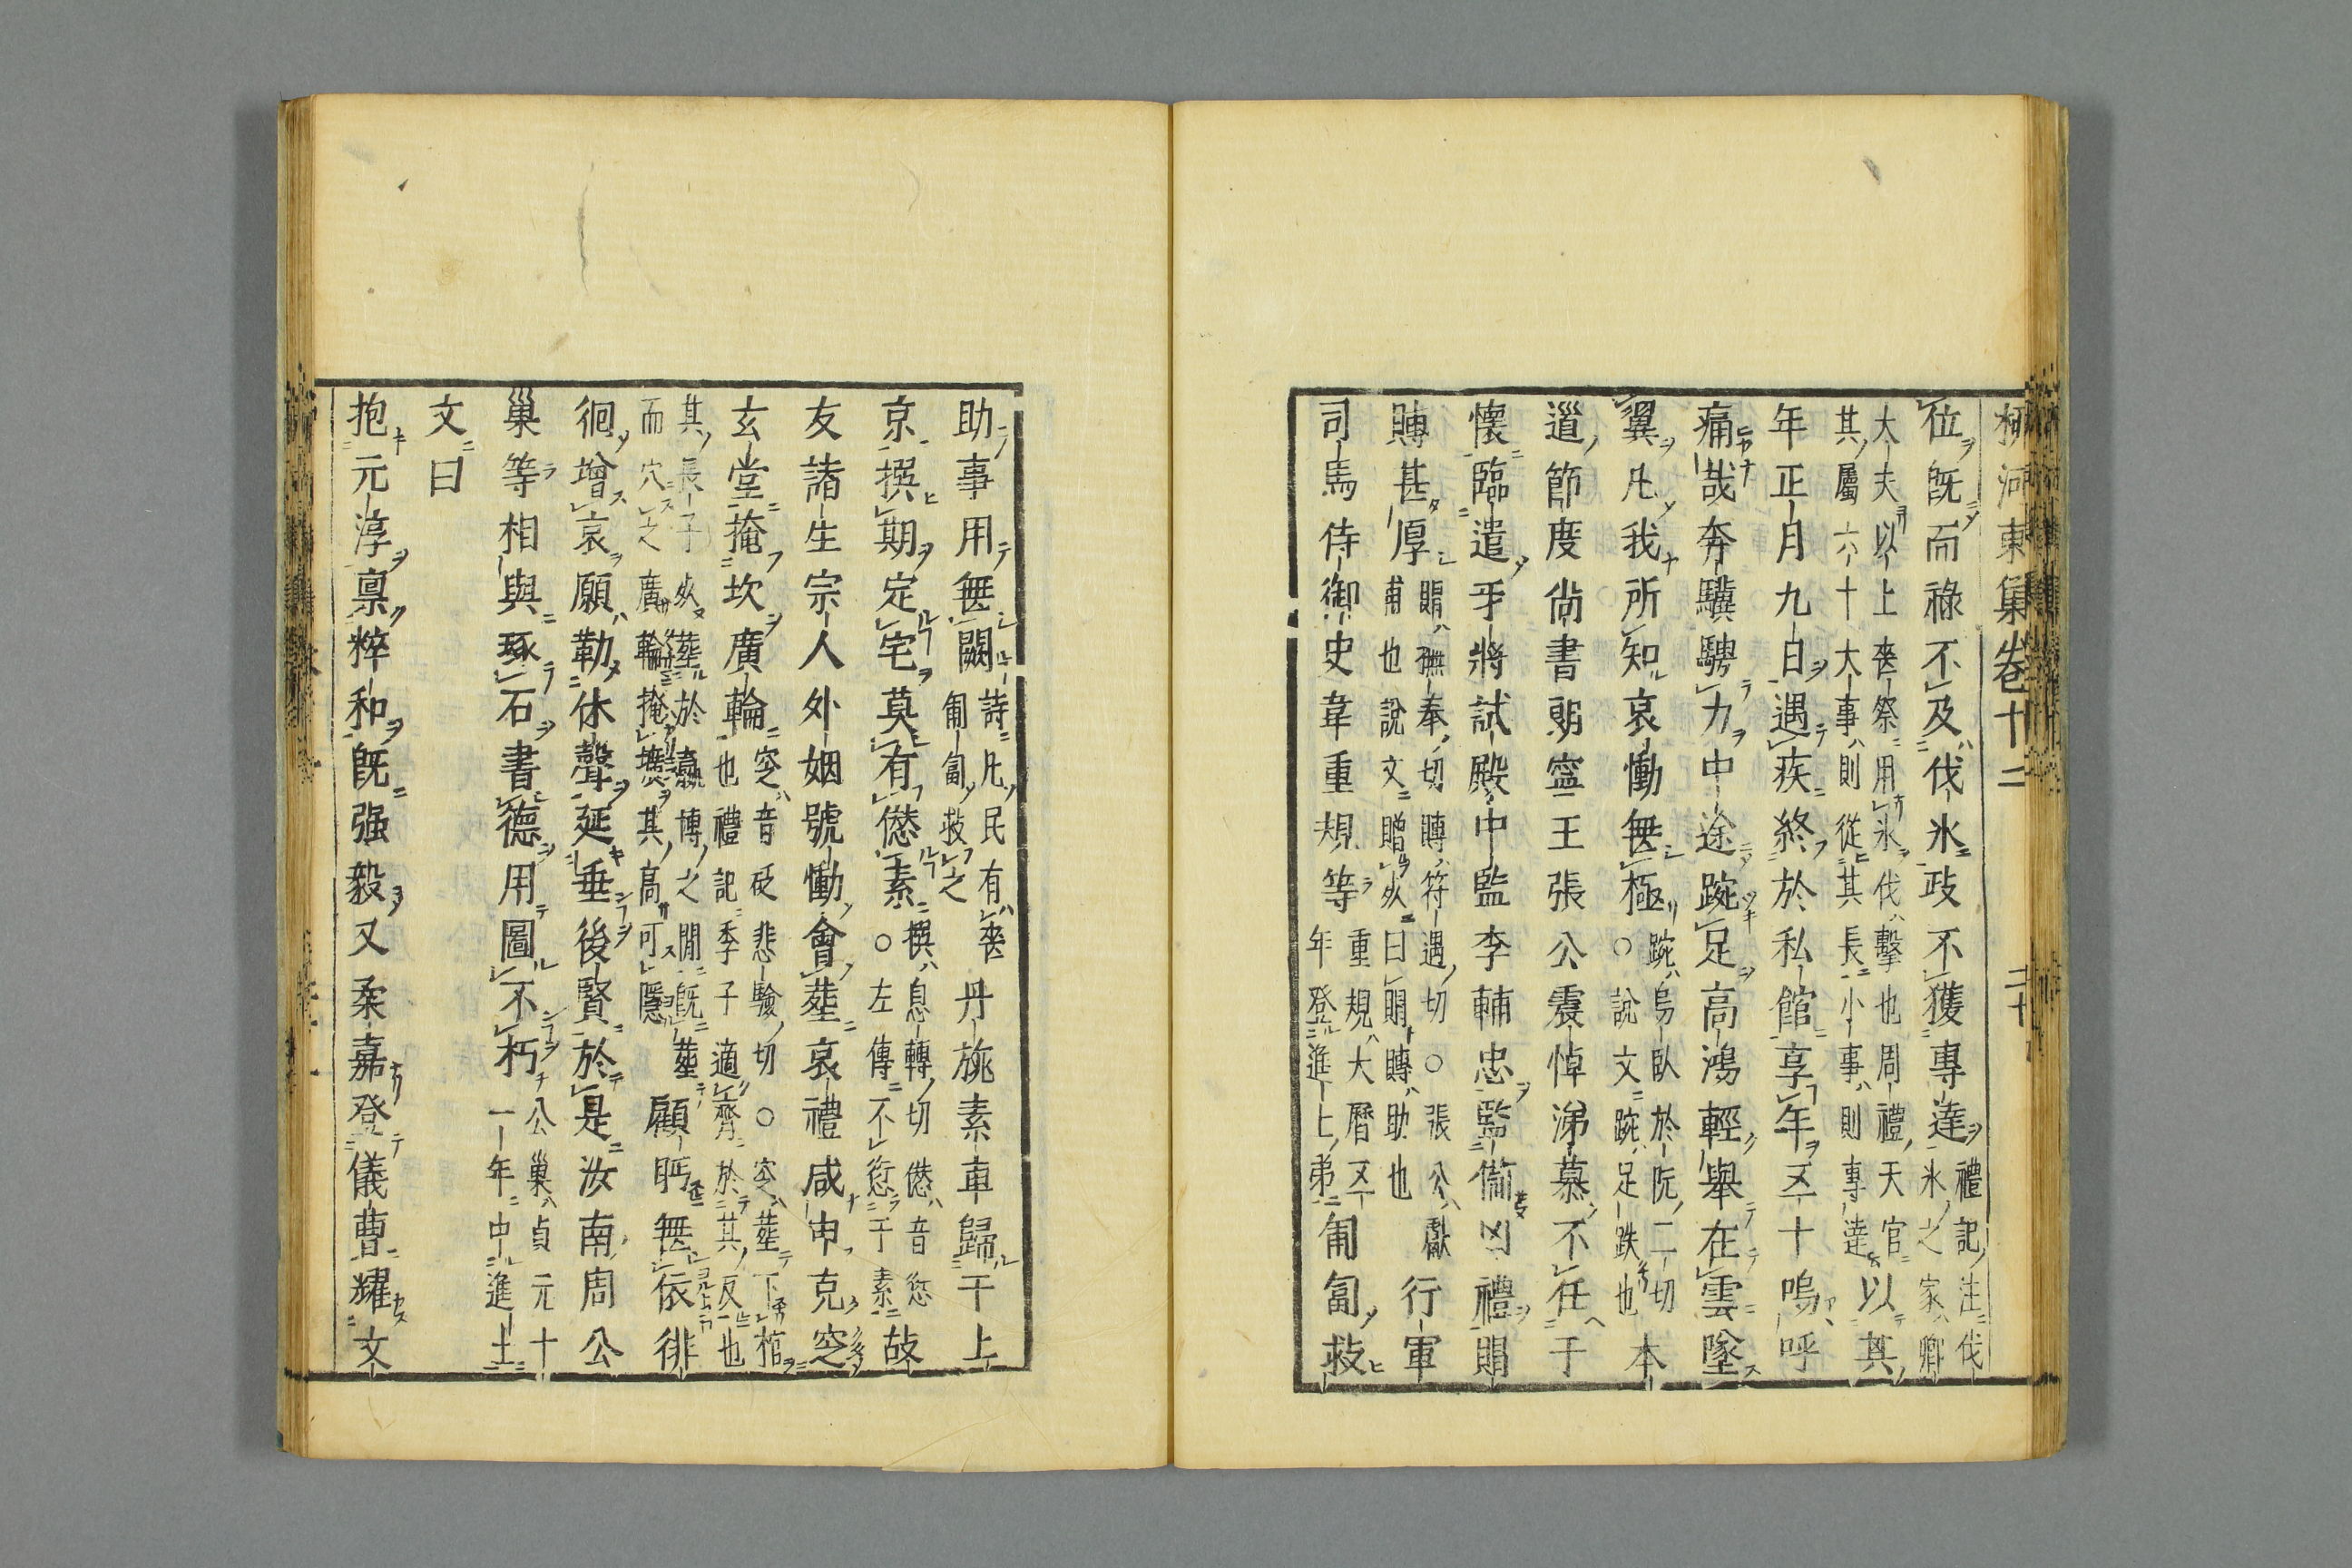 柳河東集卷十二 二十
位既而祿不及伐氷政不獲專達禮記注伐氷之家卿
大夫以上喪祭用氷伐擊也周禮天官
其屬六十大事則從其長小事則專達以其
年正月九日遇疾終於私館享年五十嗚呼
痛哉奔驥騁力中途踠足高鴻輕舉在雲墜
翼凡我所知哀慟無極踠烏臥於阮二切
○說文踠足跌也本
道節度尚書朗寧王張公震悼涕慕不任于
懷臨遣牙將試殿中監李輔忠監備凶禮賵
賻甚厚賵撫奉切賻符遇切○張公獻
甫也說文贈死曰賵賻助也行軍
司馬侍御史韋重規等重規大曆五
年登進上弟匍匐救
助事用無闕詩凡民有喪
匍匐救之丹旐素車歸于上
京撰期定宅莫有僽素撰息轉切僽音愆
○左傳不愆于素故
友諸生宗人外姻號慟會葬哀禮咸申克窆
玄堂掩坎廣輪窆音砭悲驗切○窆葬下棺
也禮記季子適齊於其反也
其長子死葬於嬴博之間既葬
而穴之廣輪掩壙其高可隱顧眄無依徘
徊增哀願勒休聲延垂後賢於是汝南周公
巢等相與琢石書德用圖不朽公巢貞元十
一年中進士
文曰
抱元淳禀粹和既强毅又柔嘉登儀曹耀文